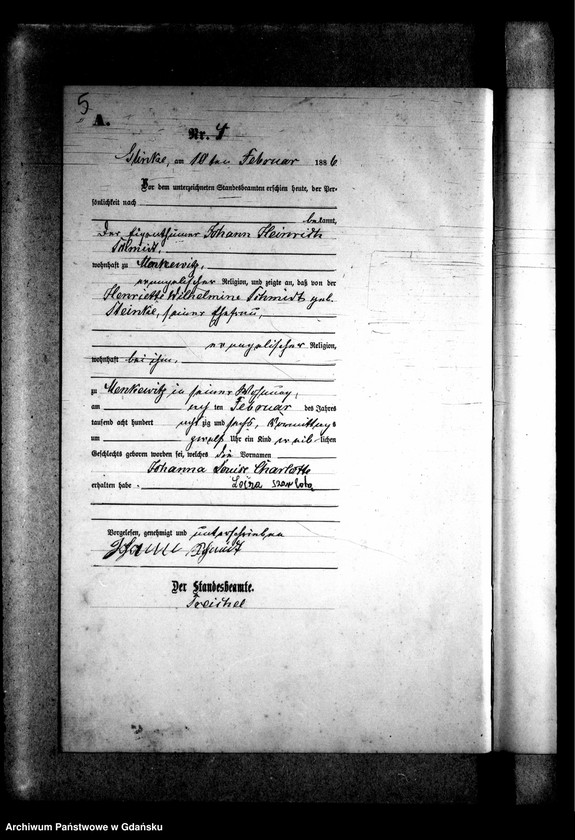 5
A.
Nr. 4
Glinke, am 10 ten Februar 1886
Vor dem unterzeichneten Standesbeamten erschien heute, der Per-
sönlichkeit nach
bekannt,
der Eigenthümer Johann Heinrich
Schmidt,
wohnhaft zu Menkewitz,
evangelischer Religion, und zeigte an, daß von der
Henriette Wilhelmine Schmidt geb.
Steinke, seiner Ehefrau,
evangelischer Religion,
wohnhaft bei ihm,
zu Menkewitz in seiner Wohnung,
am ten Februar des Jahres
tausend acht hundert achtzig und sechs, Vormittags
um zwölf Uhr ein Kind weiblichen
Geschlechts geboren worden sei, welches die Vornamen
Johanna Louise Charlotte
erhalten habe.
Vorgelesen, genehmigt und unterschrieben
Johann Schmidt
Der Standesbeamte.
Treichel
Archiwum Państwowe w Gdańsku